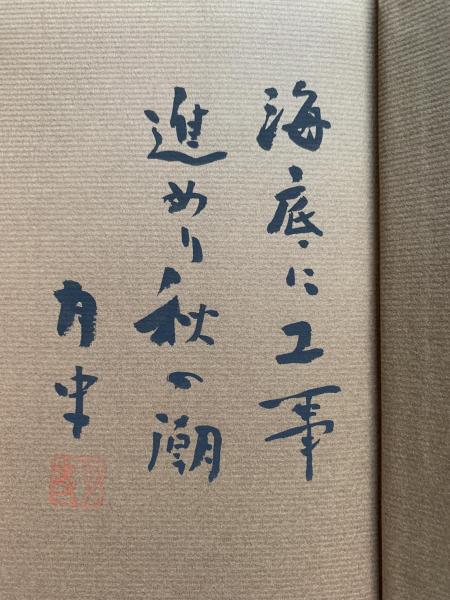 海底に工事
進めり秋の潮